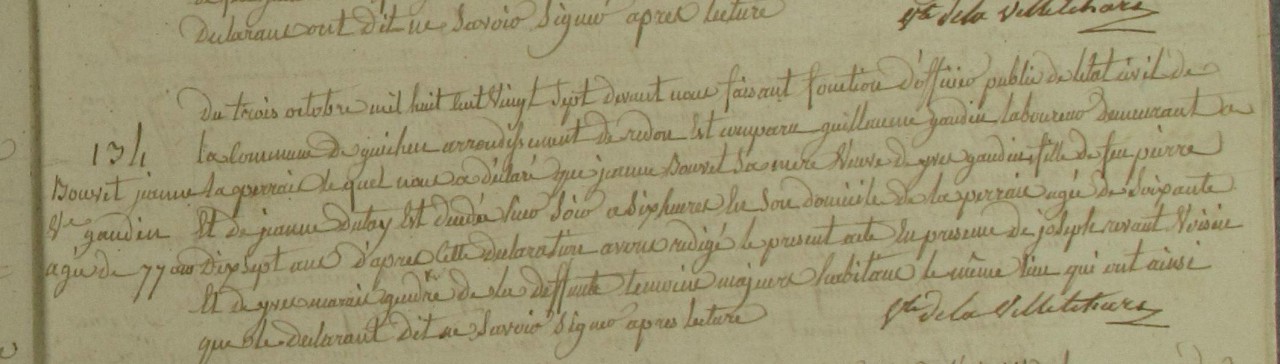 declarant ont dit ne savoir signer apres lecture
Vte de la Villethars
Du trois octobre mil huit cent vingt sept devant nous faisant fonction d'officier public de letat civil de
134
la commune de guichen arrondissement de redon Est comparu guillaume gaudin laboureur demeurant a
Bouvet jeanne
la perrais lequel nous a déclaré que jeanne Bouvet sa mere veuve de yves gaudin, fille de feu pierre
Ve gaudin
Et de jeanne dutay Est decedée hier soir a six heures En son domicile de la perrais agée de soixante
agée de 77 ans
Dix sept ans d'apres cette declaration avons redigé le present acte En presence de joseph voisin
Et de yves marais gendre de la deffunte temoins majeurs habitans le même lieu qui ont ainsi
que le declarant dit ne savoir signer apres lecture
Vte de la Villethars